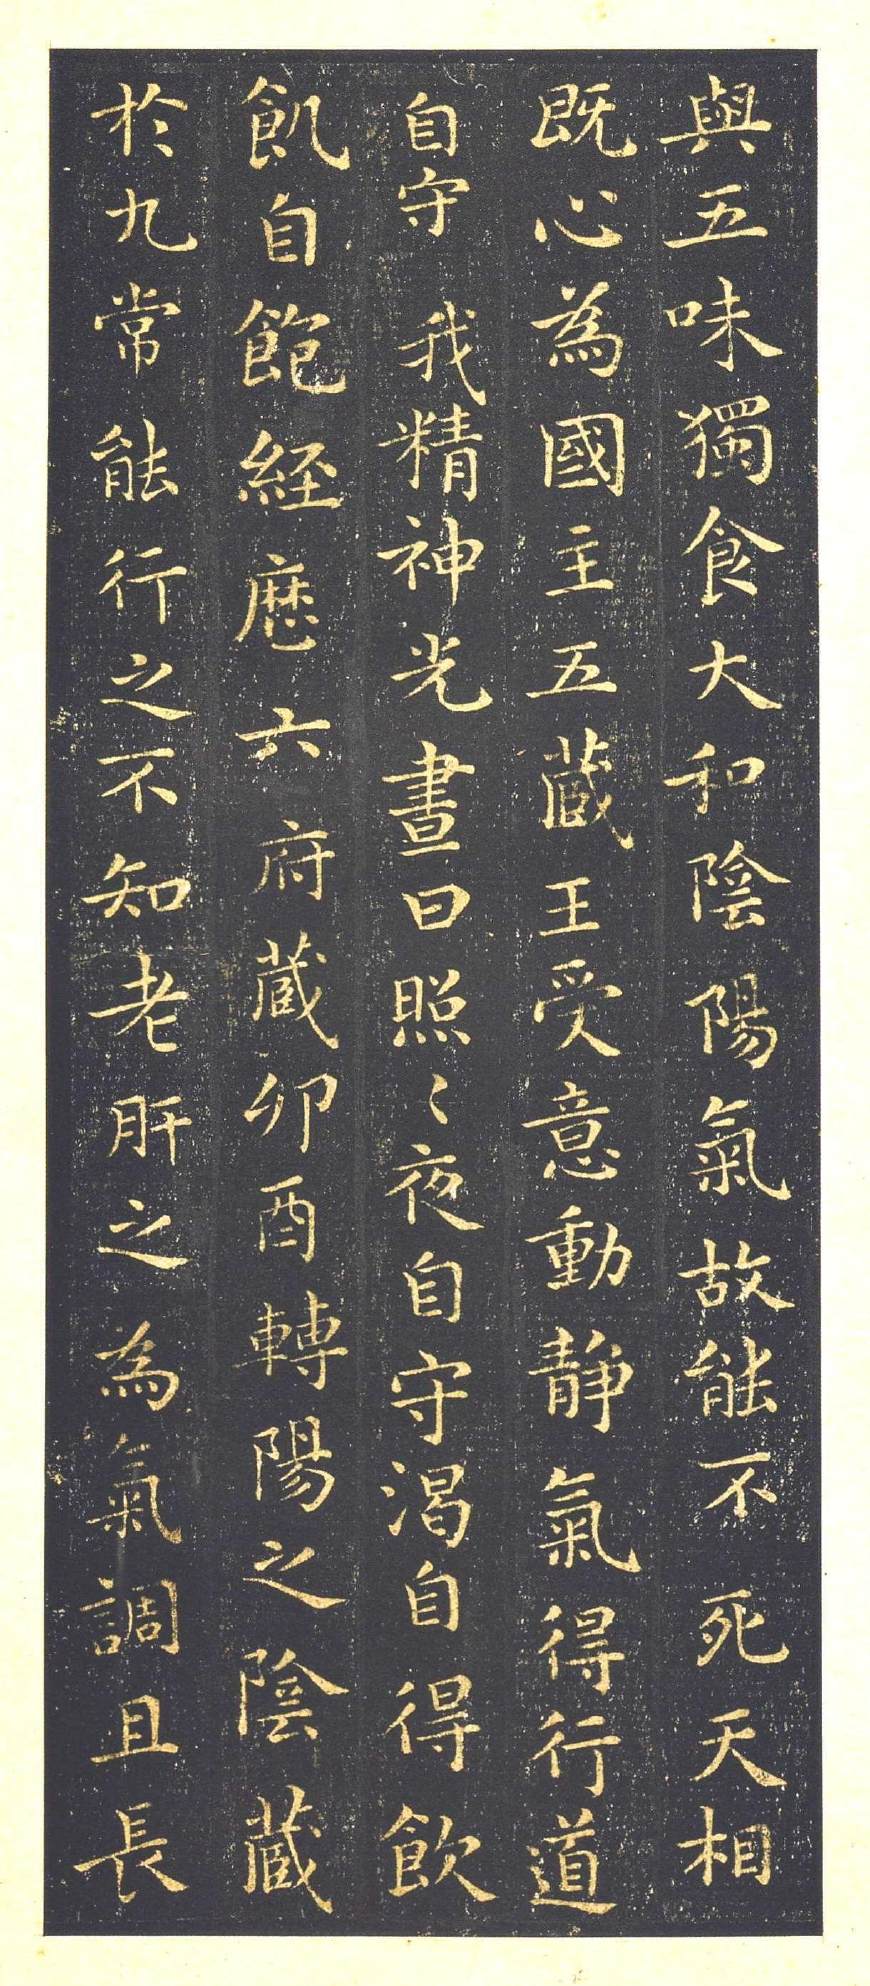 與五味獨食大和陰陽氣故能不死天相
既心為國主五蔵王受意動靜氣得行道
自守我精神光晝日照〻夜自守渴自得飲
飢自飽経歴六府蔵卯酉轉陽之陰蔵
於九常能行之不知老肝之為氣調且長